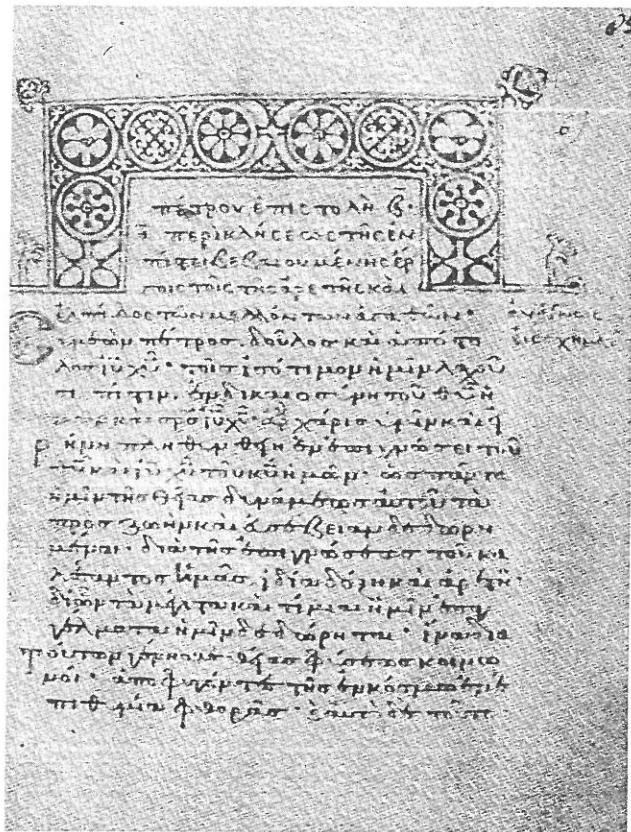 πέτρου ἐπιστολὴ β·
περὶ κλήσεως τῆς ἐν
πίστει βεβαιουμένης ἔρ
γοις τοῖς τῆς ἀρετῆς καὶ
ἐλπίδος τῶν μελλόντων ἀγαθῶν·
Συμεὼν πέτρος, δοῦλος καὶ ἀπόστο
λος ἰυ χυ· τοῖς ἰσότιμον ἡμῖν λαχοῦ
σι πίστιν, ἐν δικαιοσύνη τοῦ θυ ἡ
μῶν καὶ σρσ ἰυ χυ· χάρις ὑμῖν καὶ εἰ
ρήνη πληθυνθείη ἐν ἐπιγνώσει τοῦ
θυ καὶ ἰυ χυ τοῦ κυ ἡμῶν· ὡς πάντα
ἡμῖν τῆς θείας δυνάμεως αὐτοῦ τὰ
πρὸς ζωὴν καὶ εὐσέβειαν δεδωρη
μένα· διὰ τῆς ἐπιγνώσεως τοῦ κα
λέσαντος ἡμᾶς ἰδία δόξη καὶ ἀρετῆ·
δι ὧν τὰ μέγιστα καὶ τίμια ἡμῖν ἐπαγ
γέλματα ἡμῖν δεδώρηται· ἵνα διὰ
τούτων γένησθε θείας φύσεως κοινω
νοί· ἀποφυγόντες τῆς ἐν κόσμω ἐν ἐ
πιθυμία φθορᾶς·